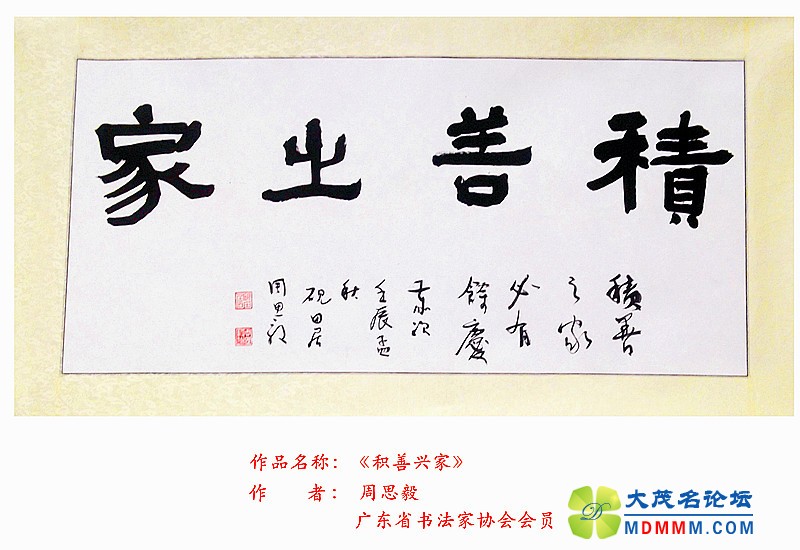 積善之家
積善
之家
必有
餘慶
歲次
壬辰孟
秋
砚田居
周思毅
作品名称：《积善兴家》
作　　者：周思毅
广东省书法家协会会员
大茂名论坛
MDMMM.COM